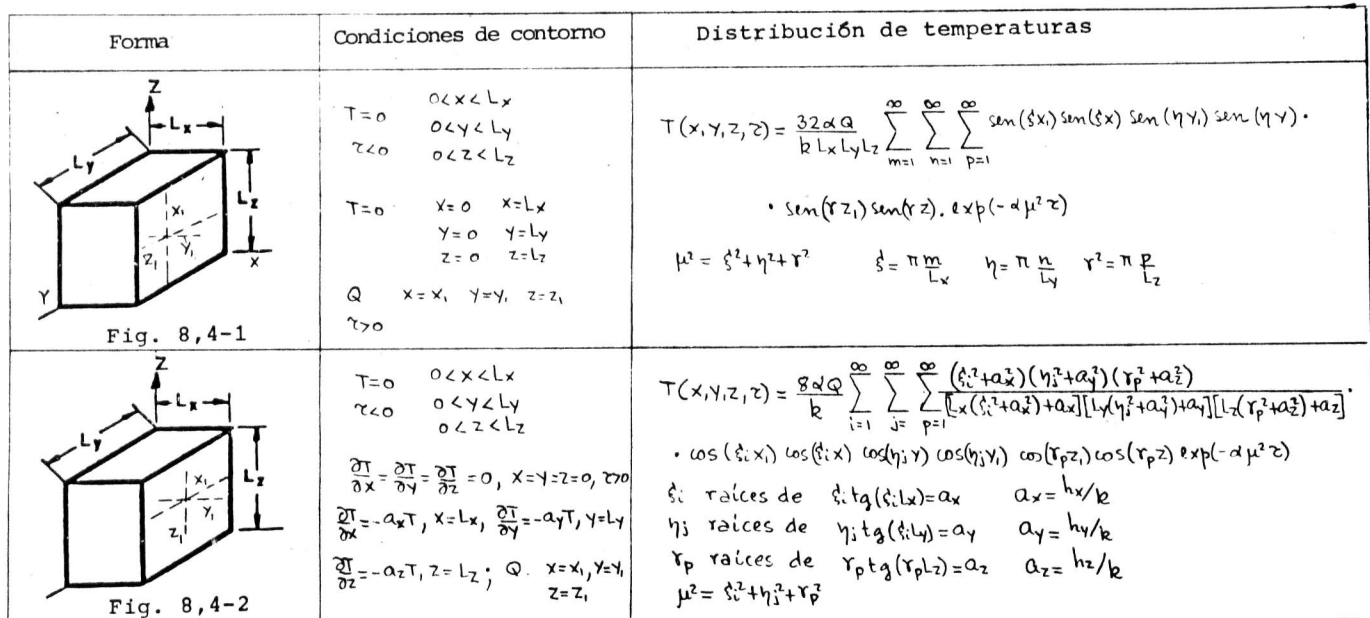 Forma
Condiciones de contorno
Distribución de temperaturas
Z
Lx
Ly
Lz
X1
Y1
Z1
X
Y
Fig. 8,4-1
T=0 0<x<Lx
0<y<Ly
τ<0 0<z<Lz
T=0 x=0 x=Lx
y=0 y=Ly
z=0 z=Lz
Q x=x₁ y=y₁ z=z₁
τ>0
T(x,y,z,τ) = 32αQ / k Lx Ly Lz ∑(m=1,∞) ∑(n=1,∞) ∑(p=1,∞) sen(ξx₁) sen(ξx) sen(ηy₁) sen(ηy)·
· sen(γz₁) sen(γz). exp(-αμ²τ)
μ² = ξ²+η²+γ² ξ = π m/Lx η = π n/Ly γ² = π p/Lz
Z
Lx
Ly
Lz
X1
Y1
Z1
Fig. 8,4-2
T=0 0<x<Lx
τ<0 0<y<Ly
0<z<Lz
∂T/∂x = ∂T/∂y = ∂T/∂z = 0, x=y=z=0, τ>0
∂T/∂x = -axT, x=Lx, ∂T/∂y = -ayT, y=Ly
∂T/∂z = -azT, z=Lz; Q. x=x₁, y=y₁
z=z₁
T(x,y,z,τ) = 8αQ/k ∑(i=1,∞) ∑(j=,∞) ∑(p=1,∞) (ξi²+ax²)(ηj²+ay²)(γp²+az²) / [Lx(ξi²+ax²)+ax][Ly(ηj²+ay²)+ay][Lz(γp²+az²)+az]·
· cos(ξix₁) cos(ξix) cos(ηjy) cos(ηjy₁) cos(γpz₁) cos(γpz) exp(-αμ²τ)
ξi raíces de ξi tg(ξiLx)=ax ax=hx/k
ηj raíces de ηj tg(ξiLy)=ay ay=hy/k
γp raíces de γp tg(γpLz)=az az=hz/k
μ² = ξi²+ηj²+γp²